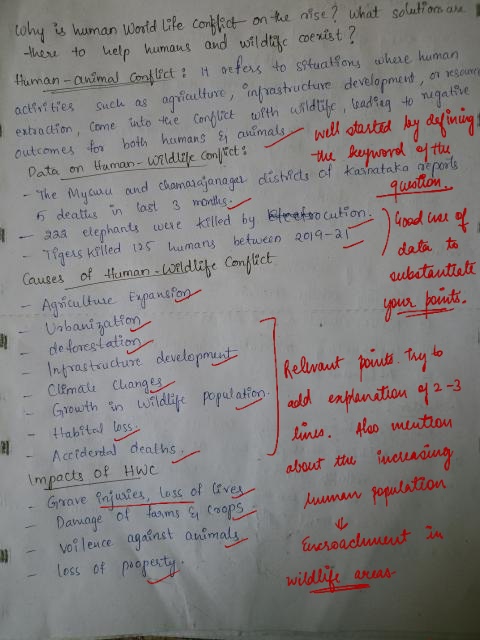 Why is human World Life Conflict on the rise? What solutions are
there to help humans and wildlife coexist?
Human-animal Conflict: It refers to situations where human
activities such as agriculture, infrastructure development, or resource
extraction, come into the conflict with wildlife, leading to negative
outcomes for both humans & animals
Well started by defining
the keyword of the
question.
Data on Human-Wildlife Conflict:
- The Mysuru and chamarajanagar districts of Karnataka reports
5 deaths in last 3 months.
- 222 elephants were killed by Electrocution.
- Tigers killed 125 humans between 2019-21
Good use of
data to
substantiate
your points.
Causes of Human-Wildlife Conflict
- Agriculture Expansion
- Urbanization
- deforestation
- Infrastructure development
- Climate Changes
- Growth in Wildlife population
- Habital loss.
- Accidental deaths.
Relevant points. Try to
add explanation of 2-3
lines. Also mention
about the increasing
human population
⇓
Encroachment in
wildlife areas
Impacts of HWC
- Grave injuries, loss of lives
- Damage of farms & crops
- voilence against animals
- loss of property.